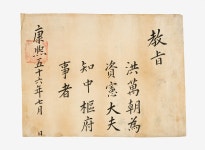 教旨
洪萬朝為
資憲大夫
知中樞府
事者
康熙五十六年七月　日